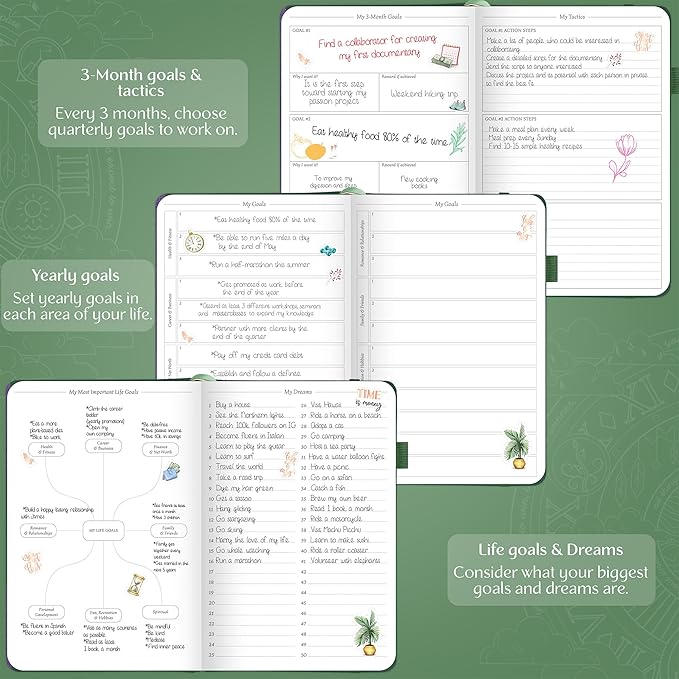 3-Month goals &
tactics
Every 3 months, choose
quarterly goals to work on.
My 3-Month Goals
GOAL #1
Find a collaborator for creating
my first documentary
Why I want it?
It is the first step
toward starting my
passion project
Reward if achieved
Weekend hiking trip
GOAL #2
Eat healthy food 80% of the time
Why I want it?
To improve my
digestion and
Reward if achieved
New cooking
books
My Tactics
GOAL #1 ACTION STEPS
Make a list of people who could be interested in
collaborating
Create a detailed script for the documentary
Send the script to anyone interested
Discuss the project and its potential with each person in private
to find the best fit
GOAL #2 ACTION STEPS
Make a meal plan every week
Meal prep every Sunday
Find 10-15 simple healthy recipes
Yearly goals
Set yearly goals in
each area of your life.
My Goals
Health & Fitness
1
*Eat healthy food 80% of the time
2
*Be able to run five miles a day
by the end of May
3
*Run a half-marathon this summer
Career & Business
1
*Get promoted at work before
the end of the year
2
*Attend at least 3 different workshops, seminars
and masterclasses to expand my knowledge
3
*Partner with more clients by the
end of the quarter
1
*Pay off my credit card debt
2
*Establish and follow a define
My Goals
Romance & Relationships
1
2
3
Family & Friends
1
2
3
1
2
My Most Important Life Goals
*Eat a more
plant-based diet
*Bike to work
Health
& Fitness
*Climb the career
ladder
(yearly promotions)
*Open my
own company
Career
& Business
*Be debt-free
*Have passive income
*Have 10k in savings
Finance
& Net Worth
*Build a happy, lasting relationship
with James
Romance
& Relationships
MY LIFE GOALS
*See friends at least
once a month
*Have 3 children
Family
& Friends
*Family gets
together every
weekend
*Get married in the
next 5 years
Personal
Development
*Be fluent in Spanish
*Become a good baker
Fun, Recreation
& Hobbies
*Visit as many countries
as possible
*Read at least
1 book a month
Spiritual
*Be mindful
*Be kind
*Meditate
*Find inner peace
My Dreams
TIME
is money
1 Buy a house
2 See the Northern lights
3 Reach 100k followers on IG
4 Become fluent in Italian
5 Learn to play the guitar
6 Learn to surf
7 Travel the world
8 Take a road trip
9 Dye my hair green
10 Get a tattoo
11 Hang gliding
12 Go stargazing
13 Go skiing
14 Marry the love of my life
15 Go whale watching
16 Run a marathon
17
18
19
20
21
22
23
24
25
26 Visit Hawaii
27 Ride a horse on a beach
28 Adopt a cat
29 Go camping
30 Host a tea party
31 Have a water balloon fight
32 Have a picnic
33 Go on a safari
34 Catch a fish
35 Brew my own beer
36 Read 1 book a month
37 Ride a motorcycle
38 Visit Machu Picchu
39 Learn to make sushi
40 Ride a roller coaster
41 Volunteer with elephants
42
43
44
45
46
47
48
49
50
Life goals & Dreams
Consider what your biggest
goals and dreams are.